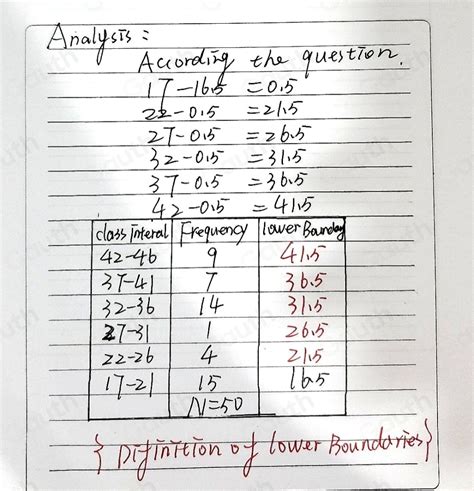 Analysis:
According the question.
17-16.5 = 0.5
22-0.5 = 21.5
27-0.5 = 26.5
32-0.5 = 31.5
37-0.5 = 36.5
42-0.5 = 41.5
class Interal Frequency lower Bounday
42-46 9 41.5
37-41 7 36.5
32-36 14 31.5
27-31 1 26.5
22-26 4 21.5
17-21 15 16.5
N=50
{ Difinition of lower Boundaries}